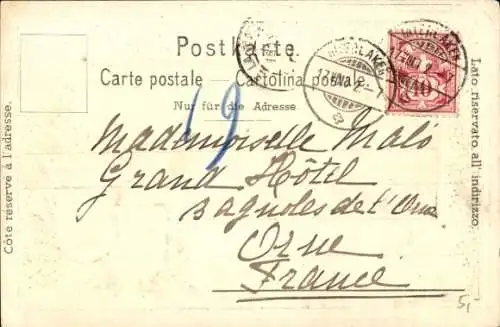 Postkarte.
Carte postale – Cartolina postale
Nur für die Adresse
Côte réservé à l'adresse.
Lato riservato all' indirizzo.
10
19
Mademoiselle Malo
Grand Hôtel
Bagnoles de l'Orne
Orne
France
5,-